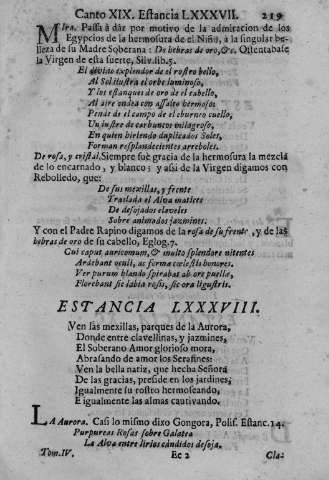 Canto XIX. Estancia LXXXVII. 219
MIra. Passa à dàr por motivo de la admiracion de los
Egypcios de la hermosura de el Niño, à la singular be-
lleza de su Madre Soberana: De hebras de oro, &c. Ostentabase
la Virgen de esta suerte, Silv. lib. 5.
El divino explendor de el rostro bello,
Al Sol ilustra el orbe luminoso,
Y los estanques de oro de el cabello,
Al aire ondea con assalto hermoso;
Pende de el campo de el eburneo cuello,
Un lustre de carbuncos milagroso,
En quien hiriendo duplicados Soles,
Forman resplandecientes arreboles.
De rosa, y cristal. Siempre fuè gracia de la hermosura la mezcla
de lo encarnado, y blanco; y assi de la Virgen digamos con
Rebolledo, que:
De sus mexillas, y frente
Traslada el Alva matices
De desojados claveles
Sobre animados jazmines.
Y con el Padre Rapino digamos de la rosa de su frente, y de las
hebras de oro de su cabello, Eglog. 7.
Cui caput auricomum, & multo splendore nitentes
Ardebant oculi, ac forma cœlestis honores.
Ver purum blando spirabas ab ore puellæ,
Florebant sic labia rosis, sic ora ligustris.
ESTANCIA LXXXVIII.
Ven las mexillas, parques de la Aurora,
Donde entre clavellinas, y jazmines,
El Soberano Amor glorioso mora,
Abrasando de amor los Serafines:
Ven la bella nariz, que hecha Señora
De las gracias, preside en los jardines,
Igualmente su rostro hermoseando,
E igualmente las almas cautivando.
LA Aurora. Casi lo mismo dixo Gongora, Polif. Estanc. 14.
Purpureas Rosas sobre Galatea
La Alva entre lirios candidos desoja.
Tom. IV. Ee 2 Cla-